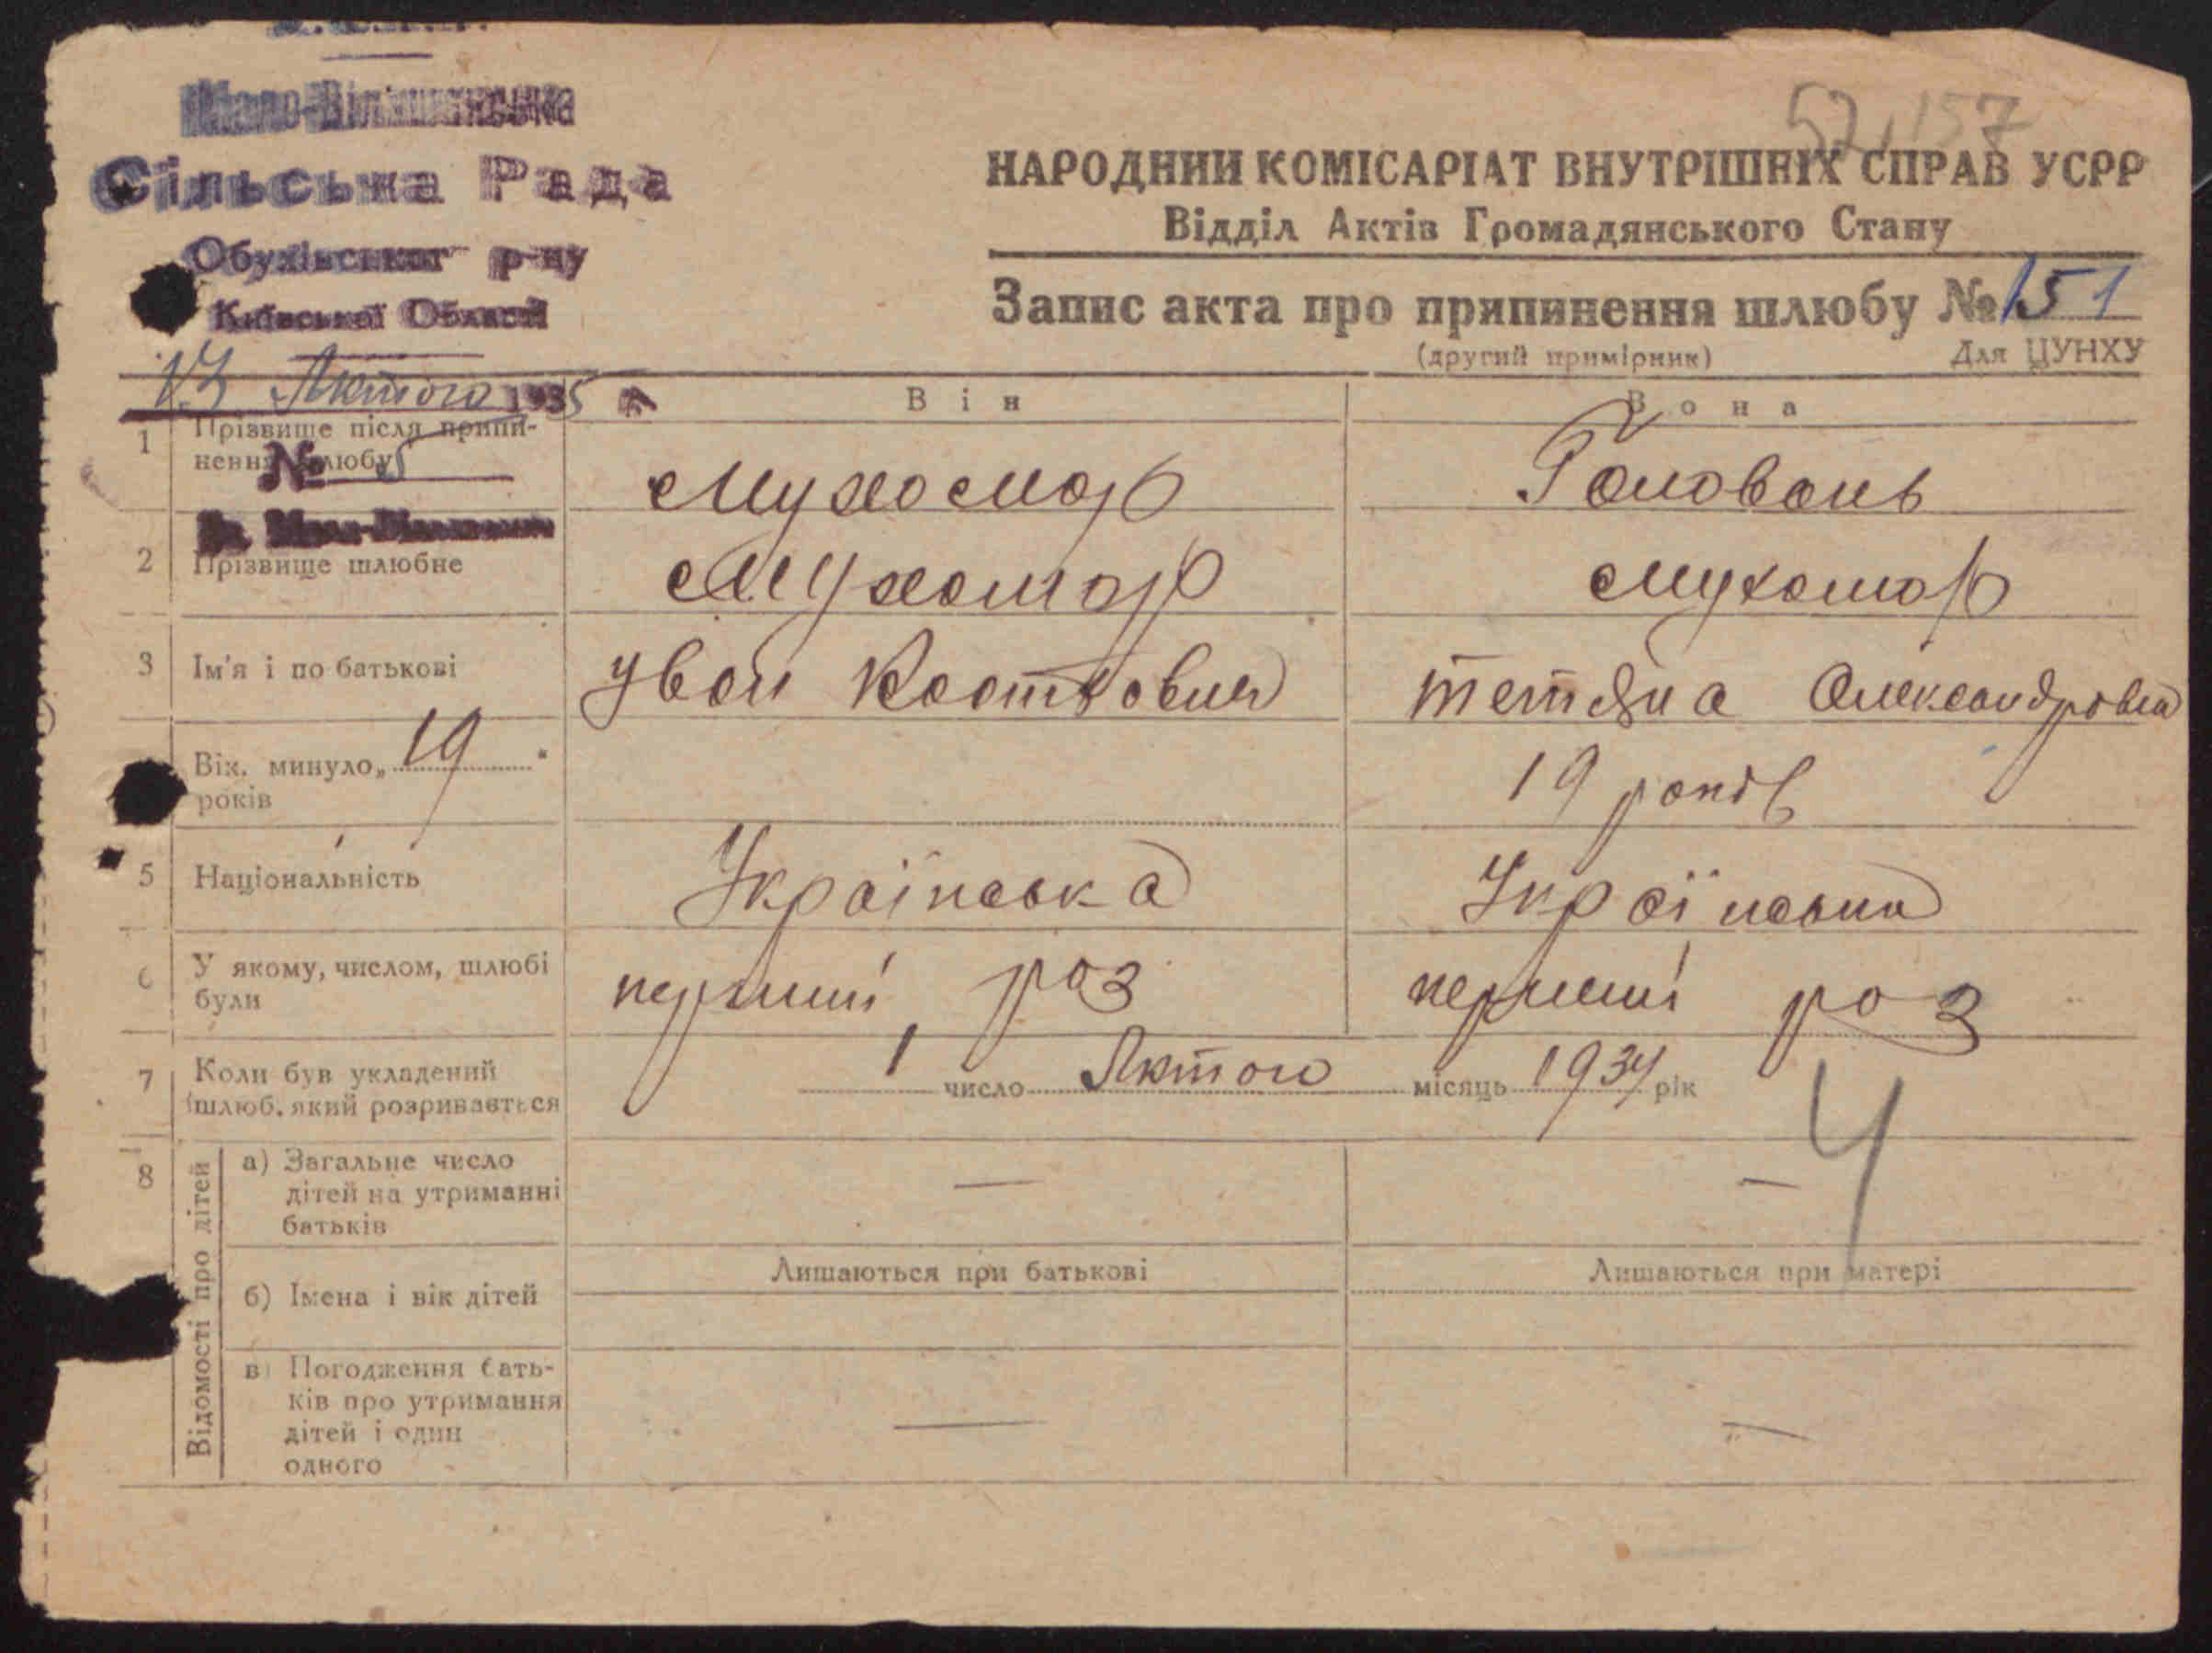 Сільська Рада
Обухівськог р-ну
Київської Области
13 Лютого 1935 р
№ 5
52, 157
НАРОДНИЙ КОМІСАРІАТ ВНУТРІШНІХ СПРАВ УСРР
Відділ Актів Громадянського Стану
Запис акта про припинення шлюбу № 151
(другий примірник) Для ЦУНХУ
Він Вона
1 Прізвище після припи-
нення шлюбу Мухомор Головань
2 Прізвище шлюбне Мухомор Мухомор
3 Ім'я і по батькові Іван Костьович Тетяна Олександровна
Вік. минуло „ 19 "
років 19 років
5 Національність Українська Українська
6 У якому, числом, шлюбі
були перший раз перший раз
7 Коли був укладений
шлюб, який розривається 1 число Лютого місяць 1934 рік
4
8 Відомості про дітей
а) Загальне число
дітей на утриманні
батьків — —
Лишаються при батькові Лишаються при матері
б) Імена і вік дітей
в) Погодження бать-
ків про утримання
дітей і один
одного — —